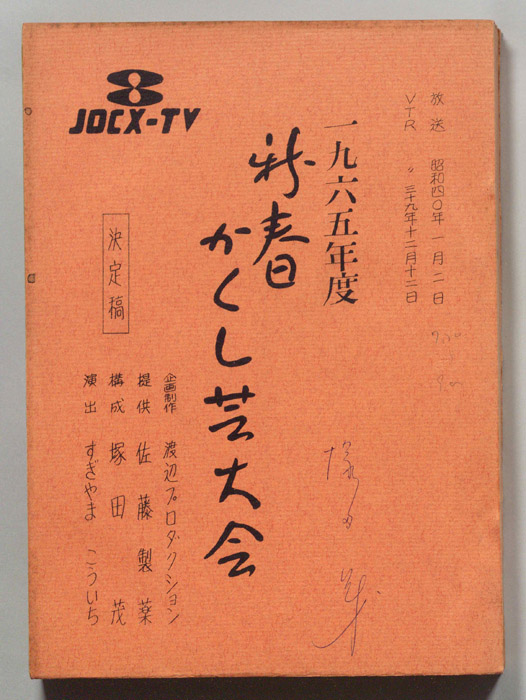 放送 昭和四〇年一月二日
VTR 〃 三十九年十二月十二日
一九六五年度
新春
かくし芸大会
JOCX-TV
決定稿
企画制作 渡辺プロダクション
提供 佐藤製薬
構成 塚田茂
演出 すぎやまこういち